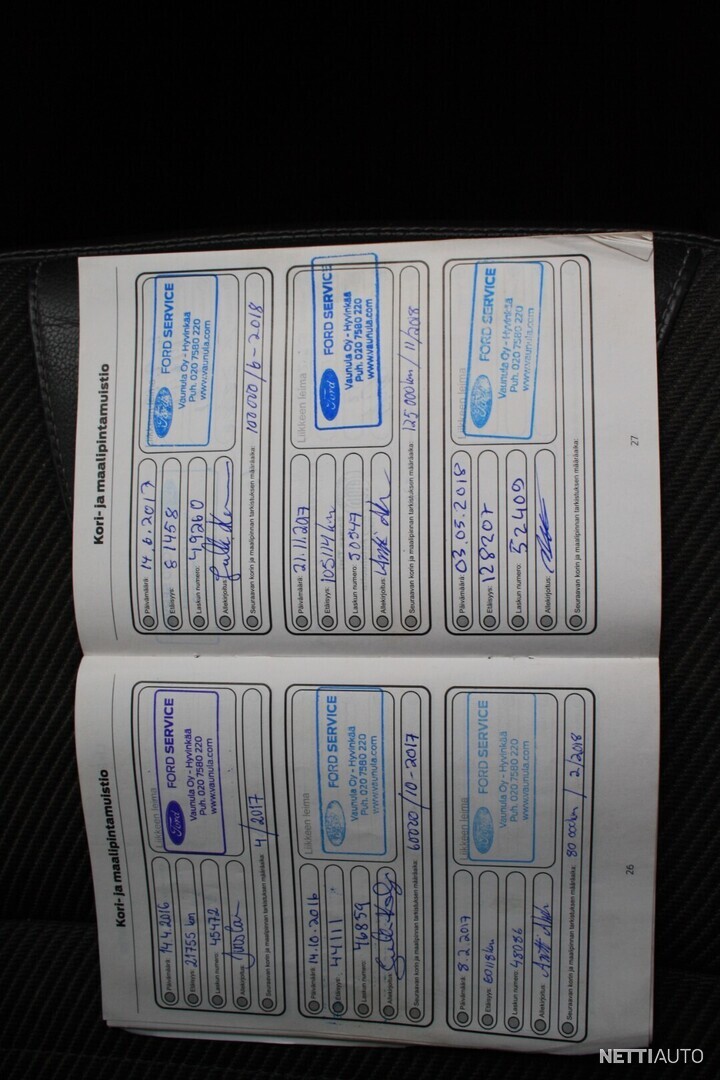 Kori- ja maalipintamuistio
Päivämäärä: 14.4.2016
Etäisyys: 21755 km
Laskun numero: 45472
Allekirjoitus:
Seuraavan korin ja maalipinnan tarkistuksen määräaika: 4/2017
Liikkeen leima
Ford
FORD SERVICE
Vaunula Oy - Hyvinkää
Puh. 020 7580 220
www.vaunula.com
Päivämäärä: 14.10.2016
Etäisyys: 44111
Laskun numero: 46859
Allekirjoitus:
Seuraavan korin ja maalipinnan tarkistuksen määräaika: 60000/10-2017
Liikkeen leima
Ford
FORD SERVICE
Vaunula Oy - Hyvinkää
Puh. 020 7580 220
www.vaunula.com
Päivämäärä: 8.2.2017
Etäisyys: 60118km
Laskun numero: 48086
Allekirjoitus:
Seuraavan korin ja maalipinnan tarkistuksen määräaika: 80 000km / 2/2018
Liikkeen leima
Ford
FORD SERVICE
Vaunula Oy - Hyvinkää
Puh. 020 7580 220
www.vaunula.com
26
Kori- ja maalipintamuistio
Päivämäärä: 14.6.2017
Etäisyys: 81458
Laskun numero: 49260
Allekirjoitus:
Seuraavan korin ja maalipinnan tarkistuksen määräaika: 100 000/6-2018
Liikkeen leima
Ford
FORD SERVICE
Vaunula Oy - Hyvinkää
Puh. 020 7580 220
www.vaunula.com
Päivämäärä: 21.11.2017
Etäisyys: 105114km
Laskun numero: 50947
Allekirjoitus:
Seuraavan korin ja maalipinnan tarkistuksen määräaika: 125 000km / 11/2018
Liikkeen leima
Ford
FORD SERVICE
Vaunula Oy - Hyvinkää
Puh. 020 7580 220
www.vaunula.com
Päivämäärä: 03.05.2018
Etäisyys: 128207
Laskun numero: 52409
Allekirjoitus:
Seuraavan korin ja maalipinnan tarkistuksen määräaika:
Liikkeen leima
Ford
FORD SERVICE
Vaunula Oy - Hyvinkää
Puh. 020 7580 220
www.vaunula.com
27
NETTIAUTO